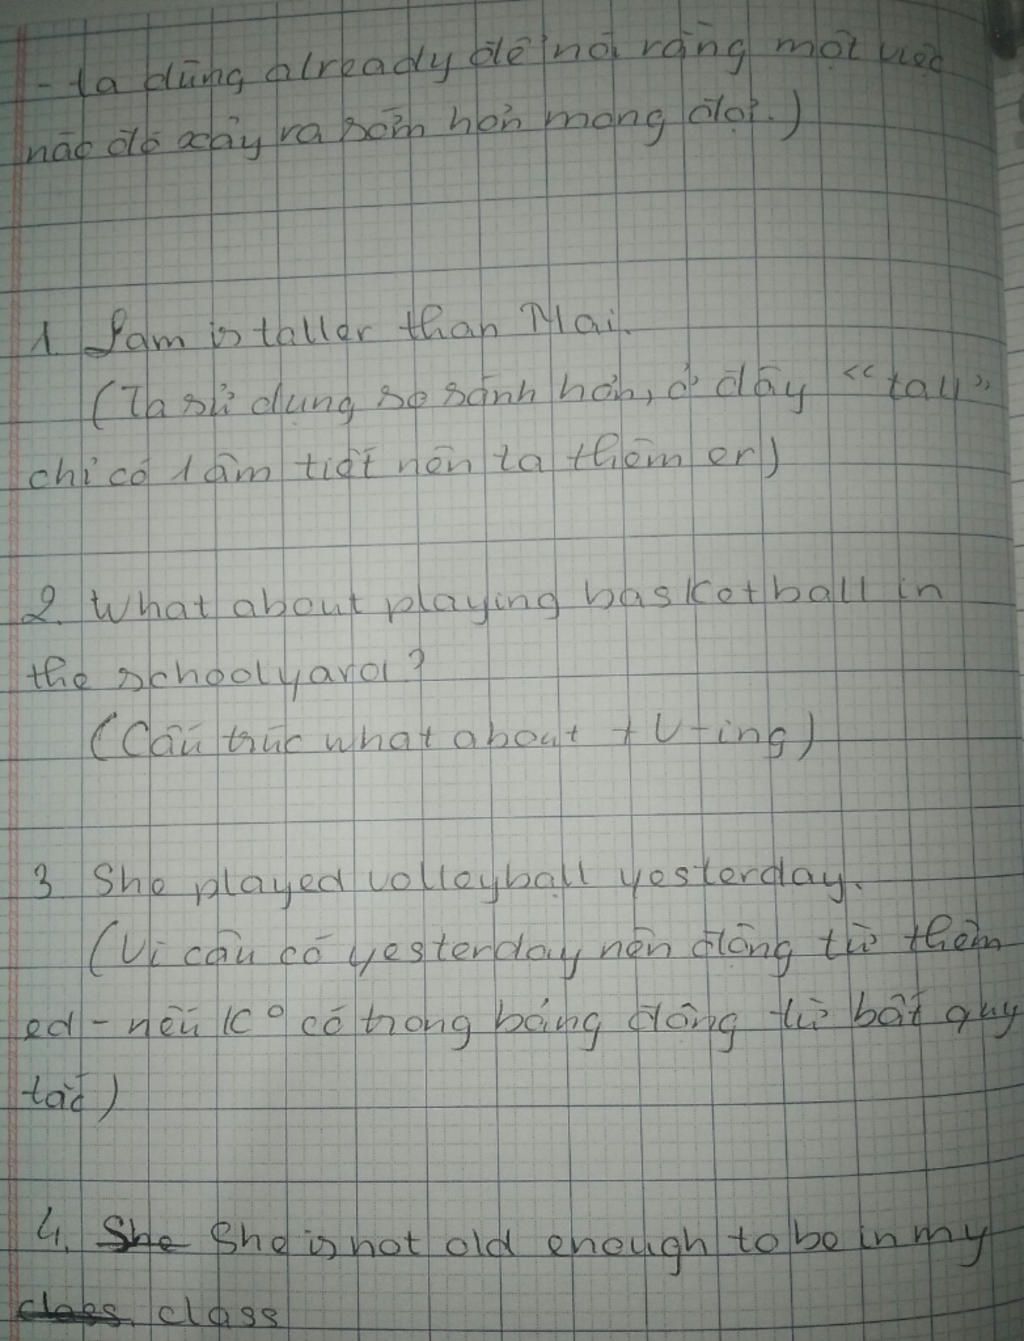 - ta dùng already để nói rằng một việc
nào đó xảy ra sớm hơn mong đợi.)
1. Lam is taller than Mai.
(Ta sử dụng so sánh hơn, ở đây "tall"
chỉ có 1 âm tiết nên ta thêm er)
2. What about playing basketball in
the schoolyard?
(Cấu trúc what about + V-ing)
3 She played volleyball yesterday.
(Vì câu có yesterday nên động từ thêm
ed - nếu k° có trong bảng động từ bất quy
tắc)
4. She She is not old enough to be in my
class class